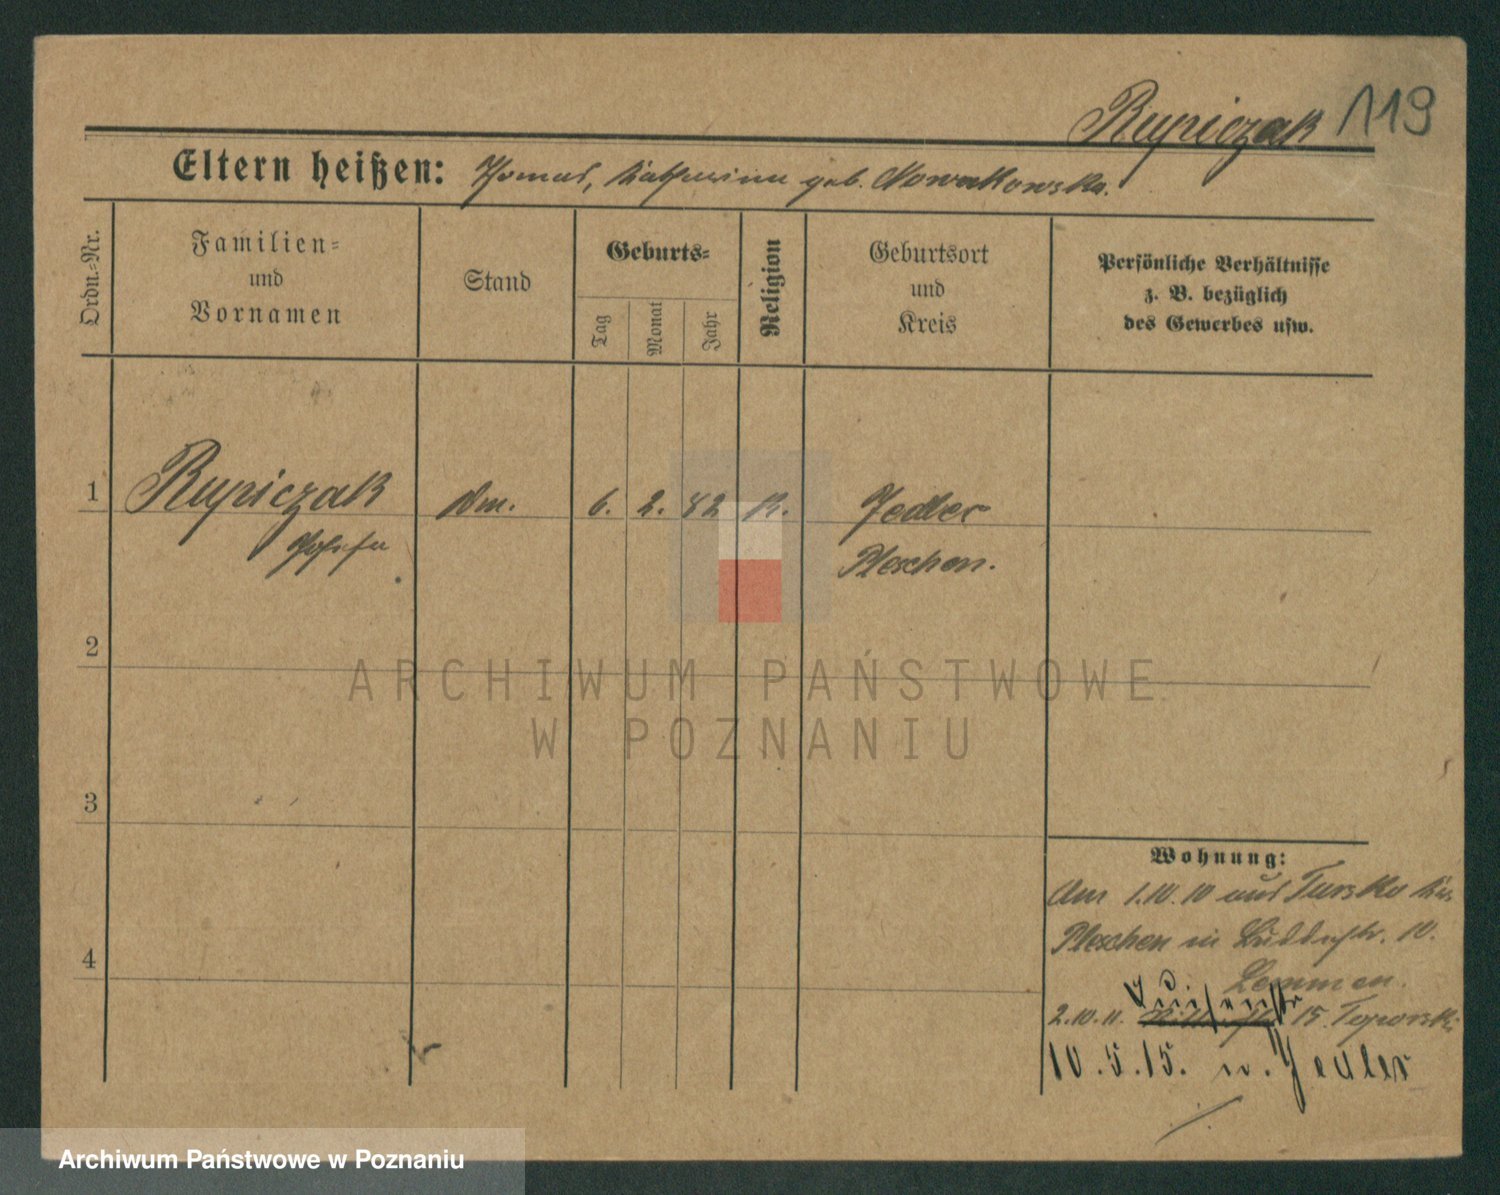 Rupiczak 119
Eltern heißen: Thomas, Katharina geb. Nowakowska.
Ordn.-Nr.
Familien-
und
Vornamen
Stand
Geburts-
Tag
Monat
Jahr
Religion
Geburtsort
und
Kreis
Persönliche Verhältnisse
z. B. bezüglich
des Gewerbes usw.
1 Rupiczak Dm. 6. 2. 82 K. Jedlec
Josefa Pleschen.
2
3
4
Wohnung:
Am 1.10.10 aus Tursko Krs.
Pleschen in 10.
2.10.11. Luisenstr 15. Toporski
10.5.15. n. Jedlec
ARCHIWUM PAŃSTWOWE
W POZNANIU
Archiwum Państwowe w Poznaniu